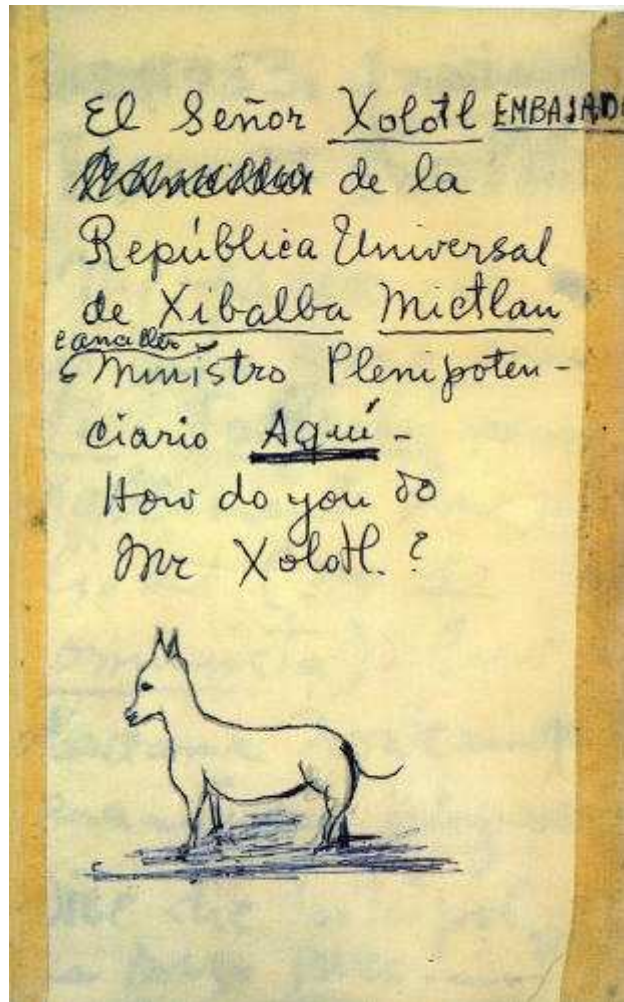 El Señor Xolotl EMBAJADO
de la
República Universal
de Xibalba Mictlan
canciller
Ministro Plenipoten-
ciario Aquí-
How do you do
Mr Xolotl.?